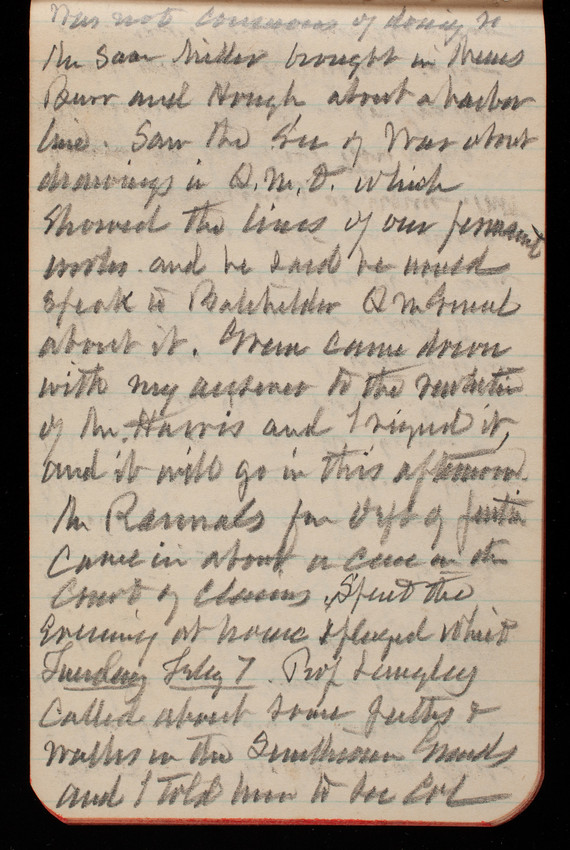 was not conscious of doing so
Mr Saw Miller brought in Mess
Burr and Hough about a harbor
line. Saw the Sec of War about
drawings in Q.M.D. which
showed the lines of our permanent
works and he said he would
speak to Batchelder QM General
about it. Green came down
with my answer to the resolution
of Mr. Harris and I signed it,
and it will go in this afternoon.
Mr Rannals from Dept of Justice
came in about a case in the
Court of Claims. Spent the
Evening at home & played whist
Tuesday Feby 7. Prof Langley
called about some paths &
walks in the Smithsonian Grounds
and I told him to see Col